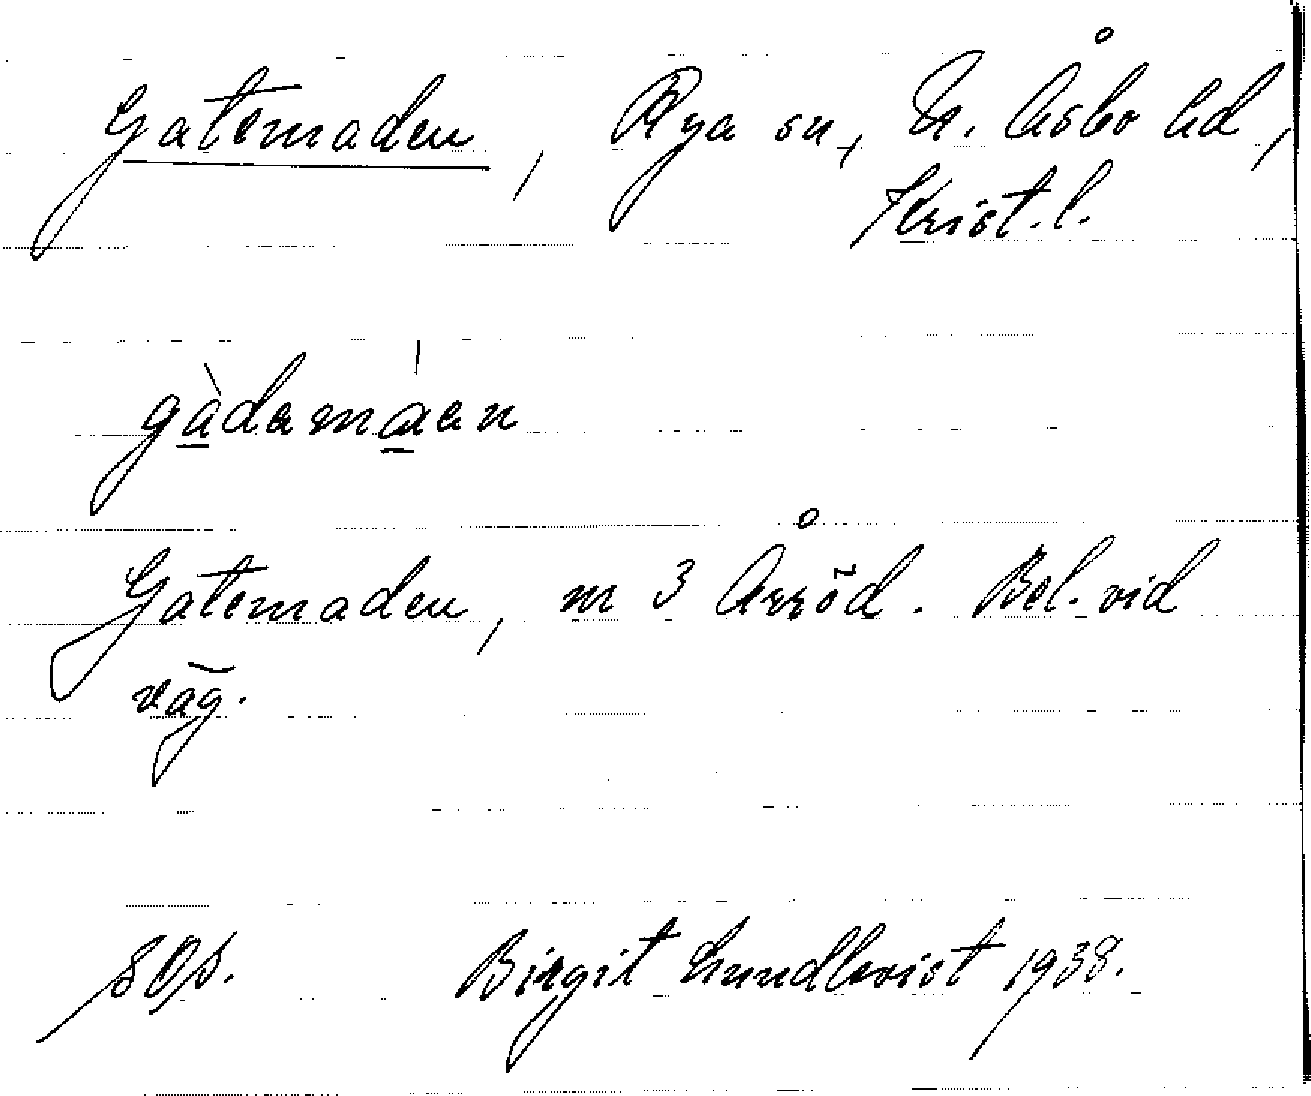 Gatemaden, Rya sn, N. Åsbo hd,
Krist. l.
gàdamáen
Gatemaden, m 3 Årröd. Bel. vid
väg.
Birgit Lundkvist 1938.